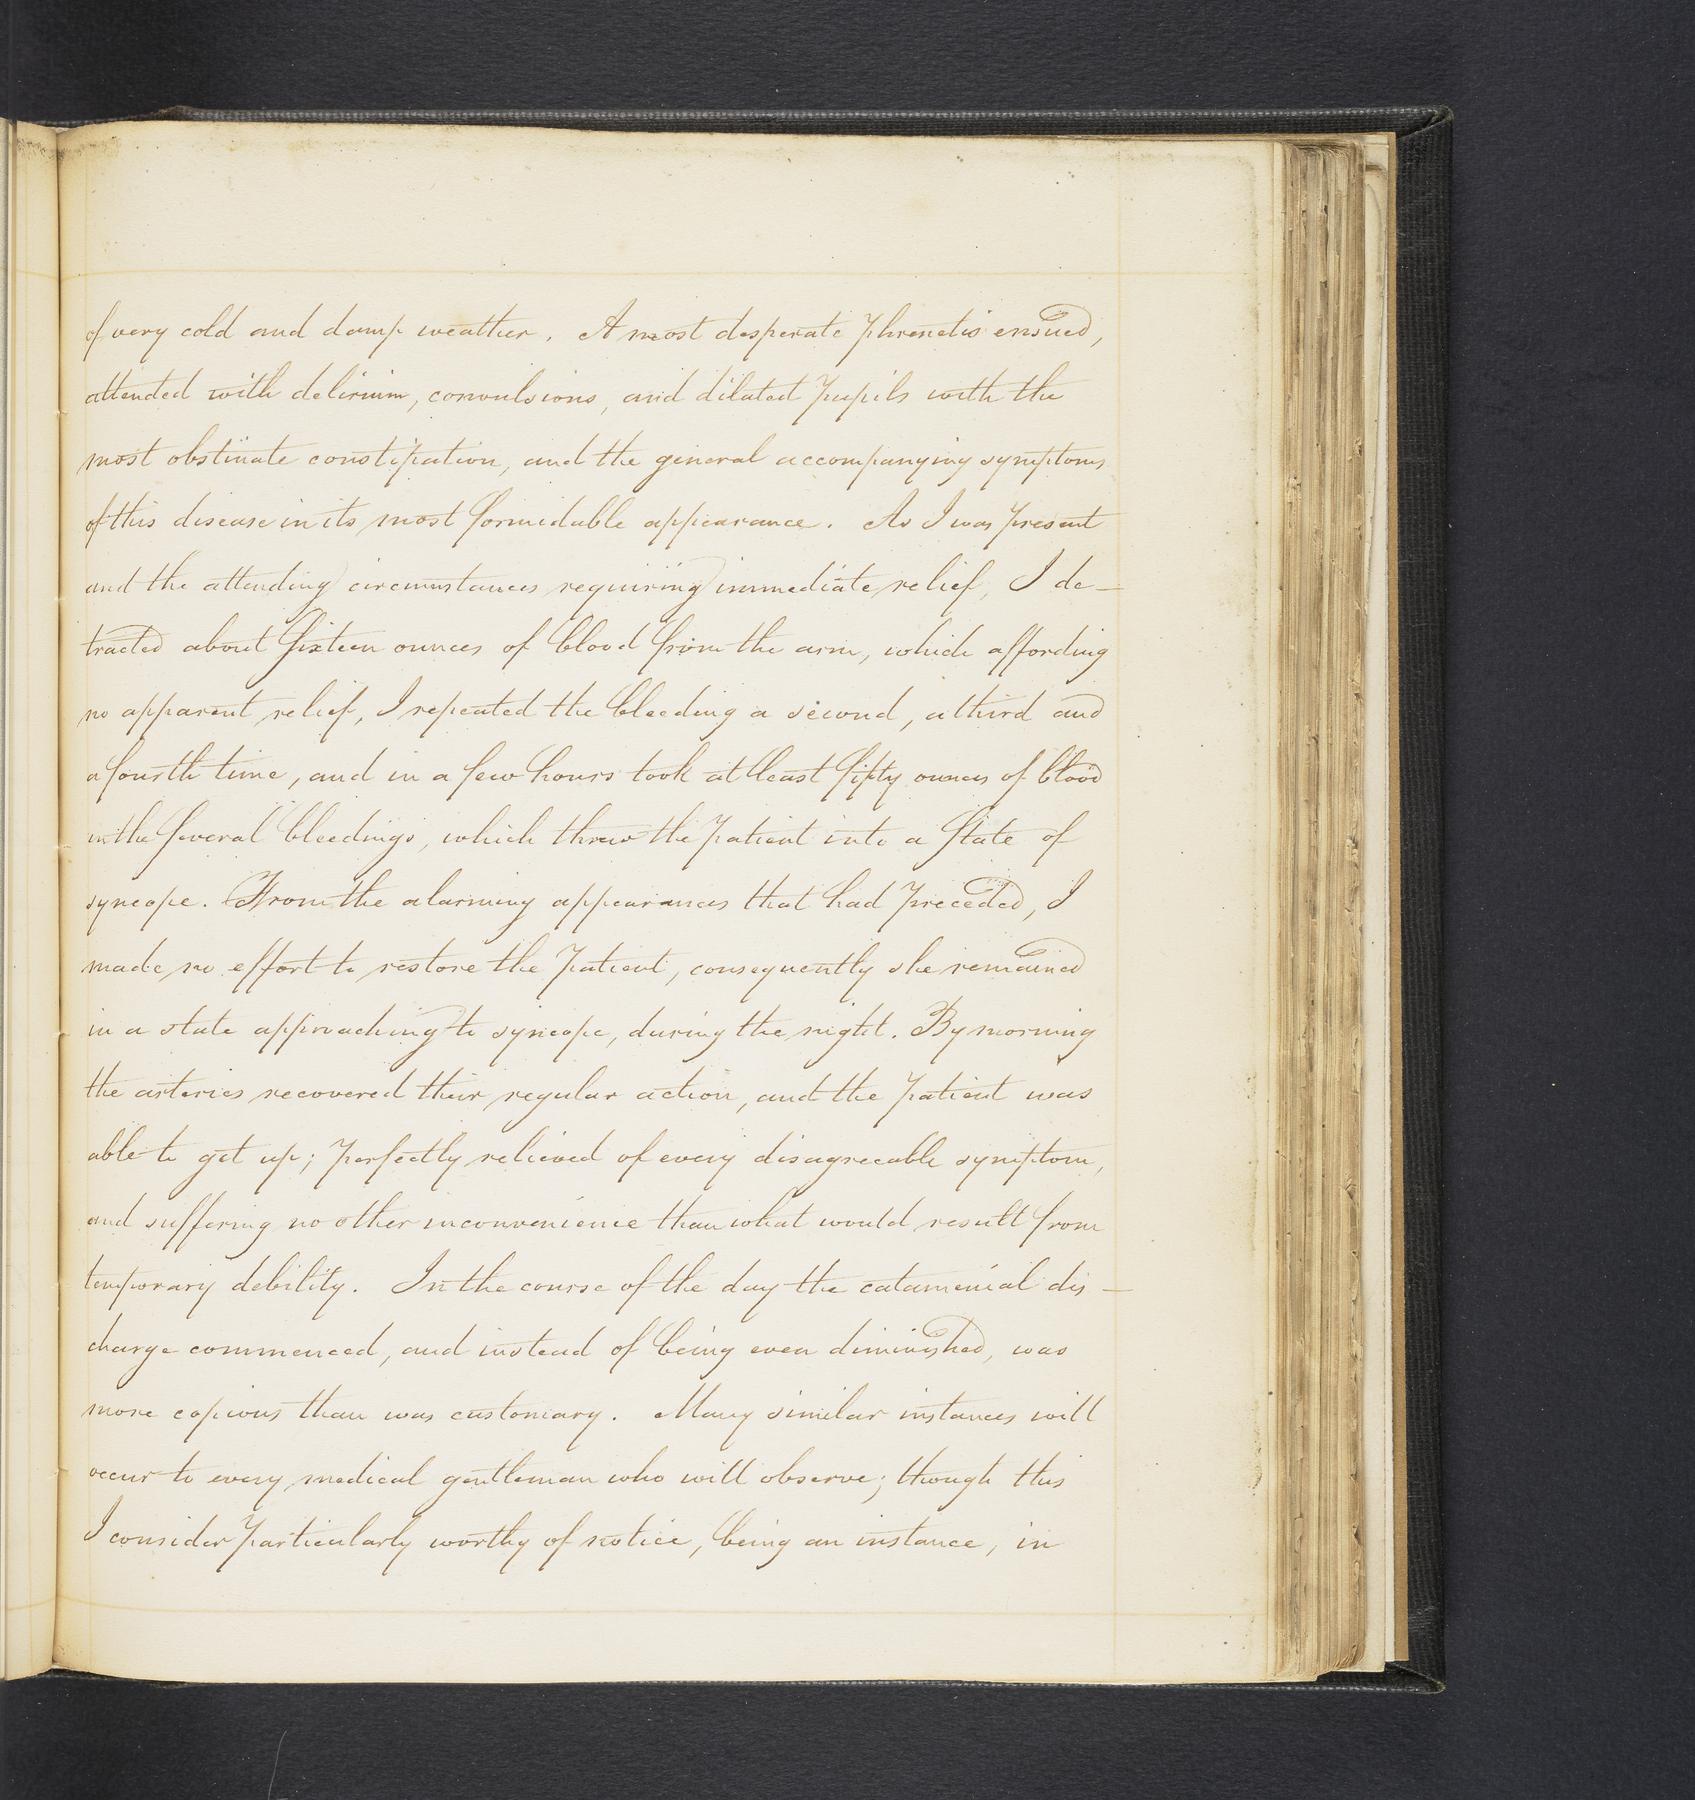 of very cold and damp weather. A most desperate phrenetis ensued,
attended with delirium, convulsions, and dilated pupils with the
most obstinate constipation, and the general accompanying symptoms
of this disease in its most formidable appearance. As I was present
and the attending circumstances requiring immediate relief, I de-
tracted about sixteen ounces of blood from the arm, which affording
no apparent relief, I repeated the bleeding a second, a third and
a fourth time, and in a few hours took at least fifty ounces of blood
in the several bleedings, which threw the patient into a state of
syncope. From the alarming appearances that had preceded, I
made no effort to restore the patient, consequently she remained
in a state approaching to syncope, during the night. By morning
the arteries recovered their regular action, and the patient was
able to get up; perfectly relieved of every disagreeable symptom,
and suffering no other inconvenience than what would result from
temporary debility. In the course of the day the catamenial dis-
charge commenced, and instead of being even diminished, was
more copious than was customary. Many similar instances will
occur to every medical gentleman who will observe; though this
I consider particularly worthy of notice, being an instance, in